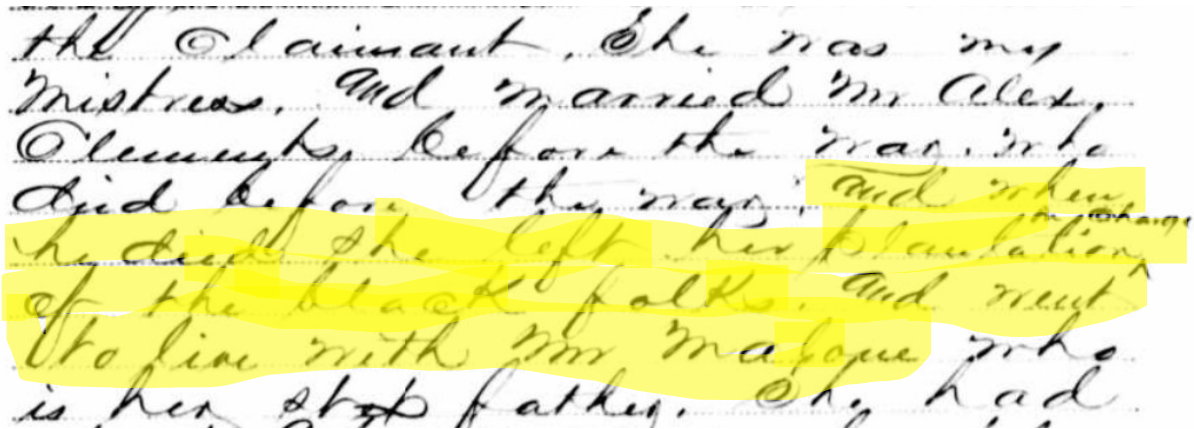 the Claimant. She was my
Mistress. and married Mr Alex.
Clements, before the war. who
died before the war. and when
he died she left her plantation in charge
of the black folks. and went
to live with Mr Malone who
is her step father. She had